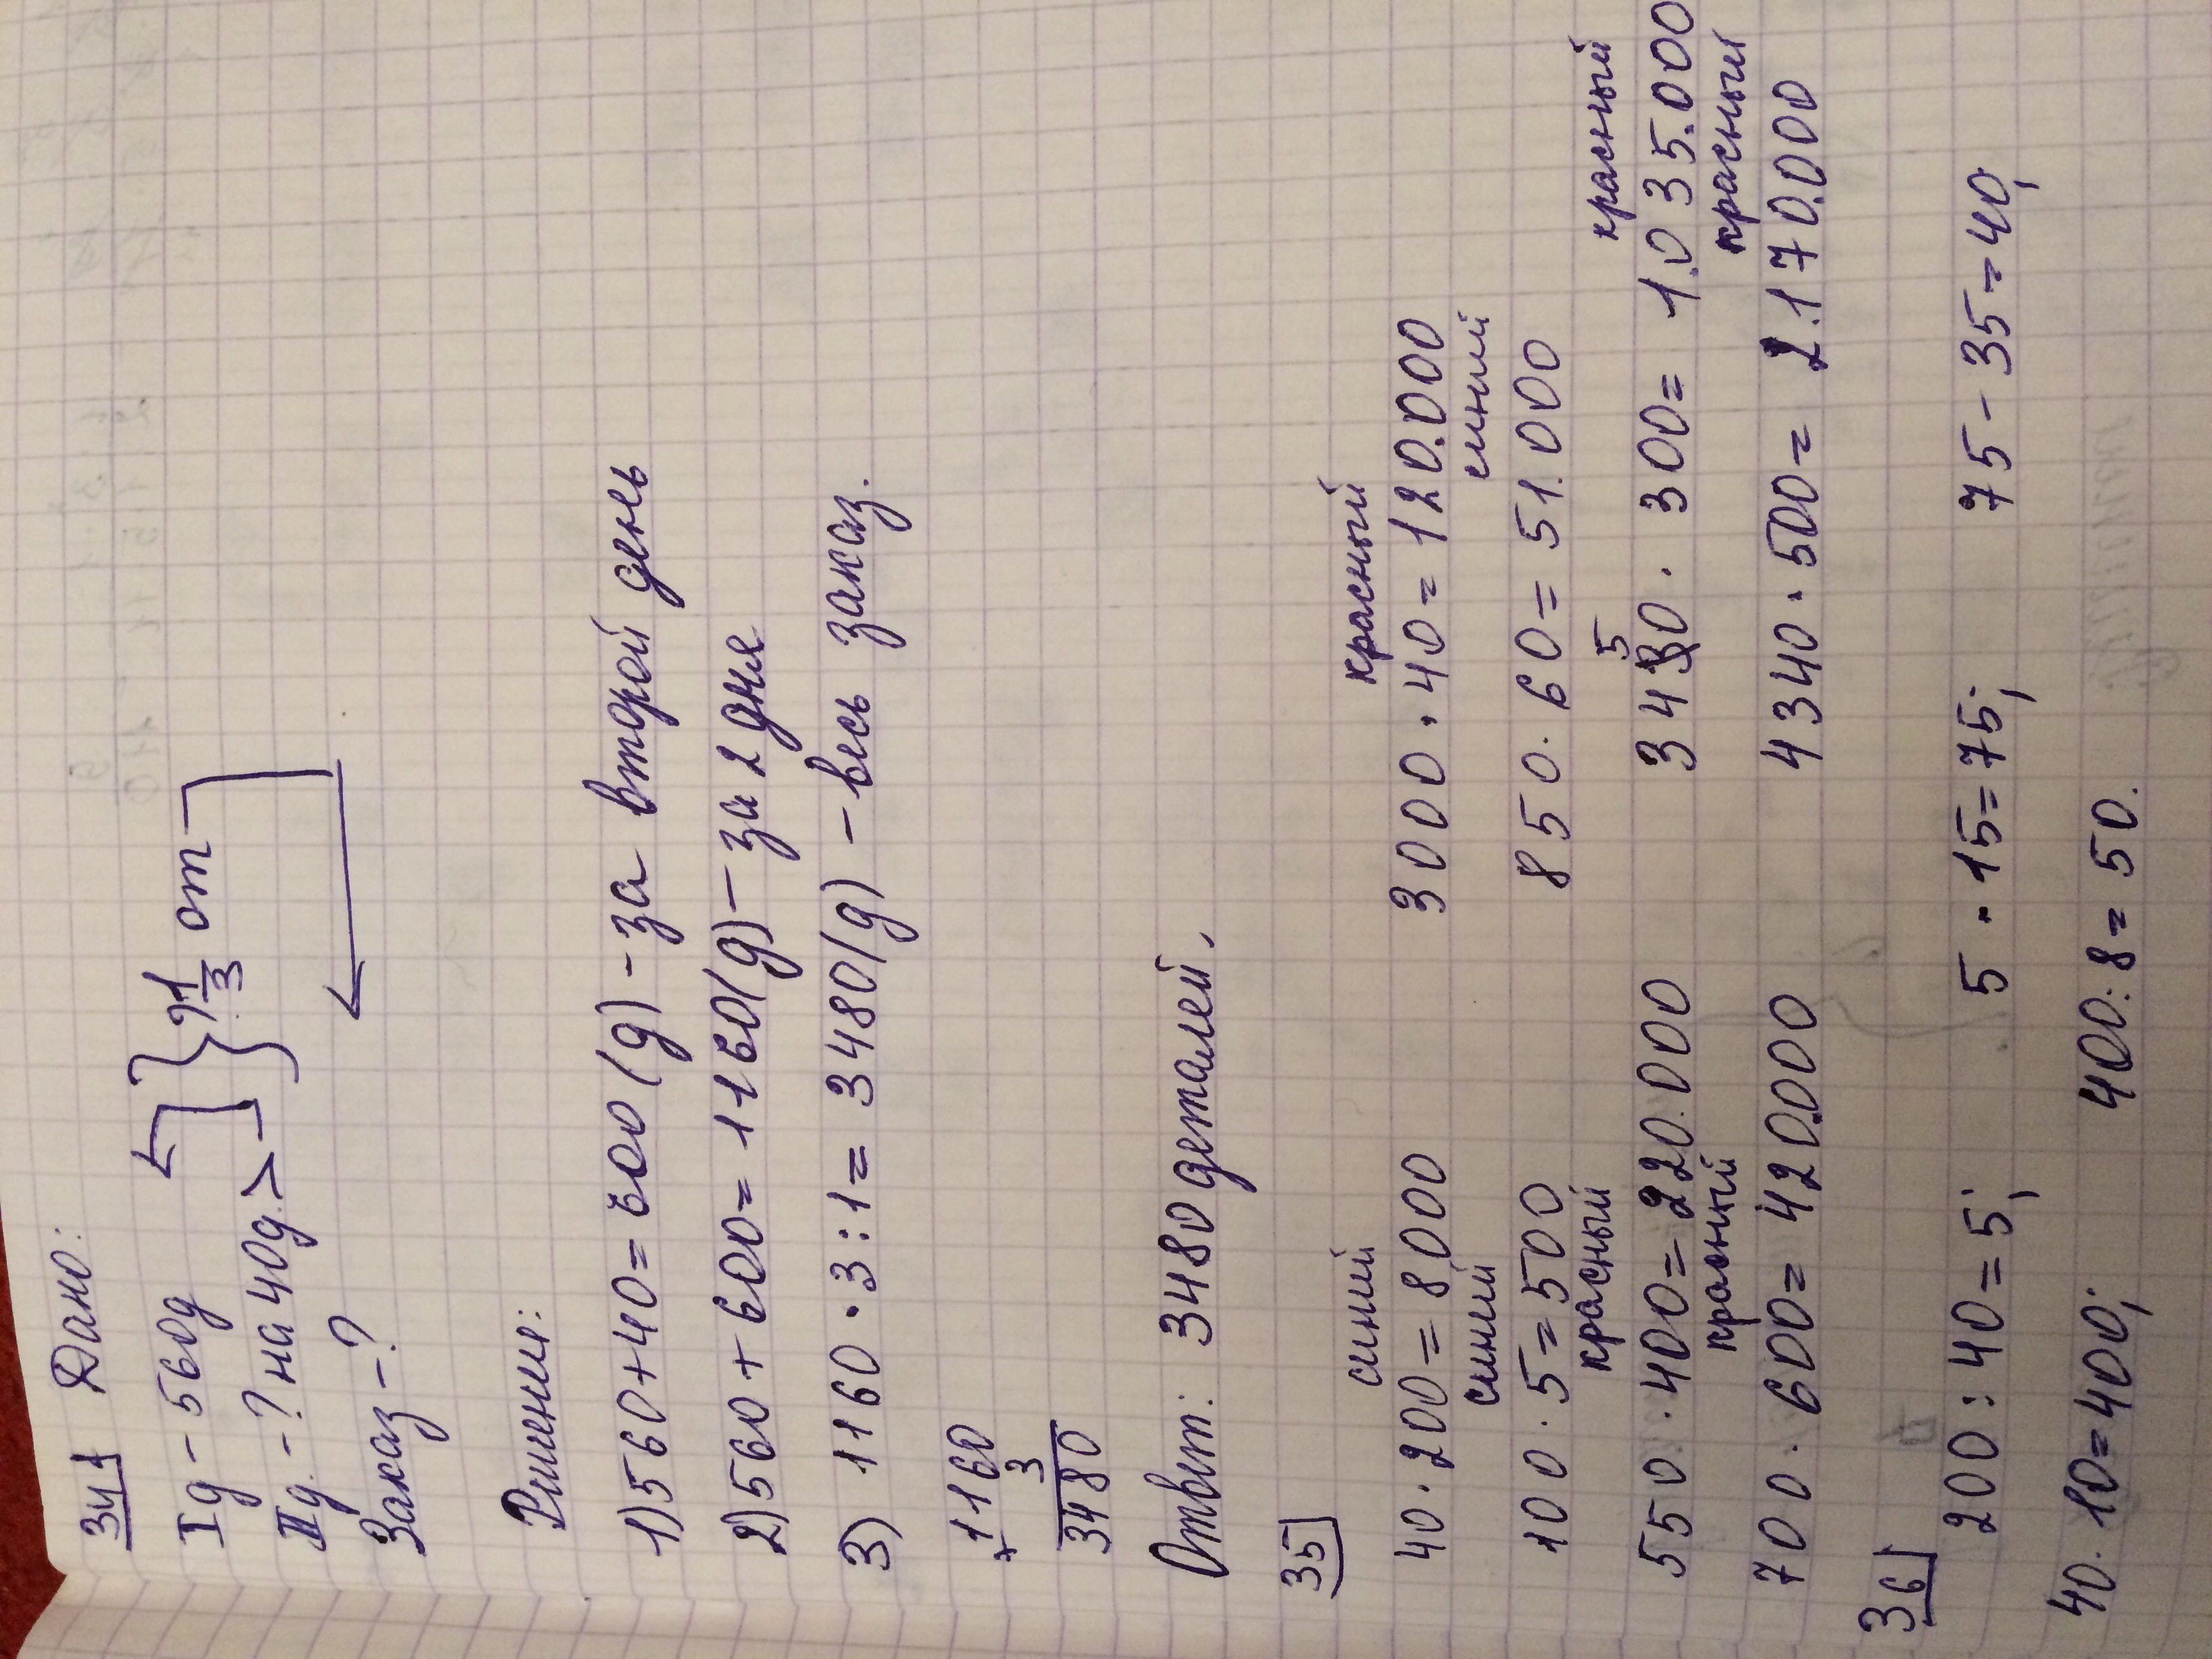 34 Дано:
I д – 560д
II д. – ? на 40д. > } 1/3 от
Заказ – ?
Решение:
1) 560 + 40 = 600 (д) – за второй день
2) 560 + 600 = 1160 (д) – за 2 дня
3) 1160 · 3 : 1 = 3480 (д) – весь заказ.
× 1160
3
3480
Ответ: 3480 деталей.
35
синий красный
40 · 200 = 8000 3000 · 40 = 120.000
синий синий
100 · 5 = 500 850 · 60 = 51.000
красный 5 красный
550 · 400 = 220.000 3430 · 300 = 1.035.000
красный красный
700 · 600 = 420.000 4340 · 500 = 2.170.000
36
200 : 40 = 5; 5 · 15 = 75; 75 – 35 = 40;
40 · 10 = 400; 400 : 8 = 50.